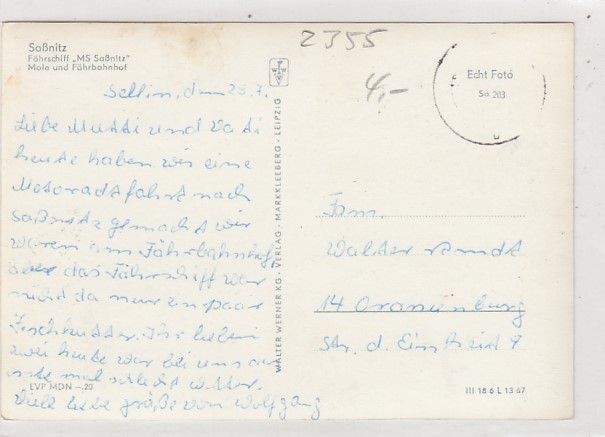 Saßnitz
Fährschiff „MS Saßnitz"
Mole und Fährbahnhof
Sellin, den 23.7.
Liebe Mutti und Vati
heute haben wir eine
Motoradtfahrt nach
Saßnitz gemacht wir
waren am Fährbahnhof,
aber das Fährschiff war
nicht da nur ein paar
Fischkutter. Ihr lieben
zwei heute war bei uns das
erste mal schlecht wetter.
Viele liebe größe von Wolfgang
EVP MDN –.20
WALTER WERNER KG · VERLAG · MARKKLEEBERG · LEIPZIG
2355
4,-
Echt Foto
Sa 203
Fam.
Walter Arndt
14 Oranienburg
Str. d. Einheit 9
III 18 6 L 13 67